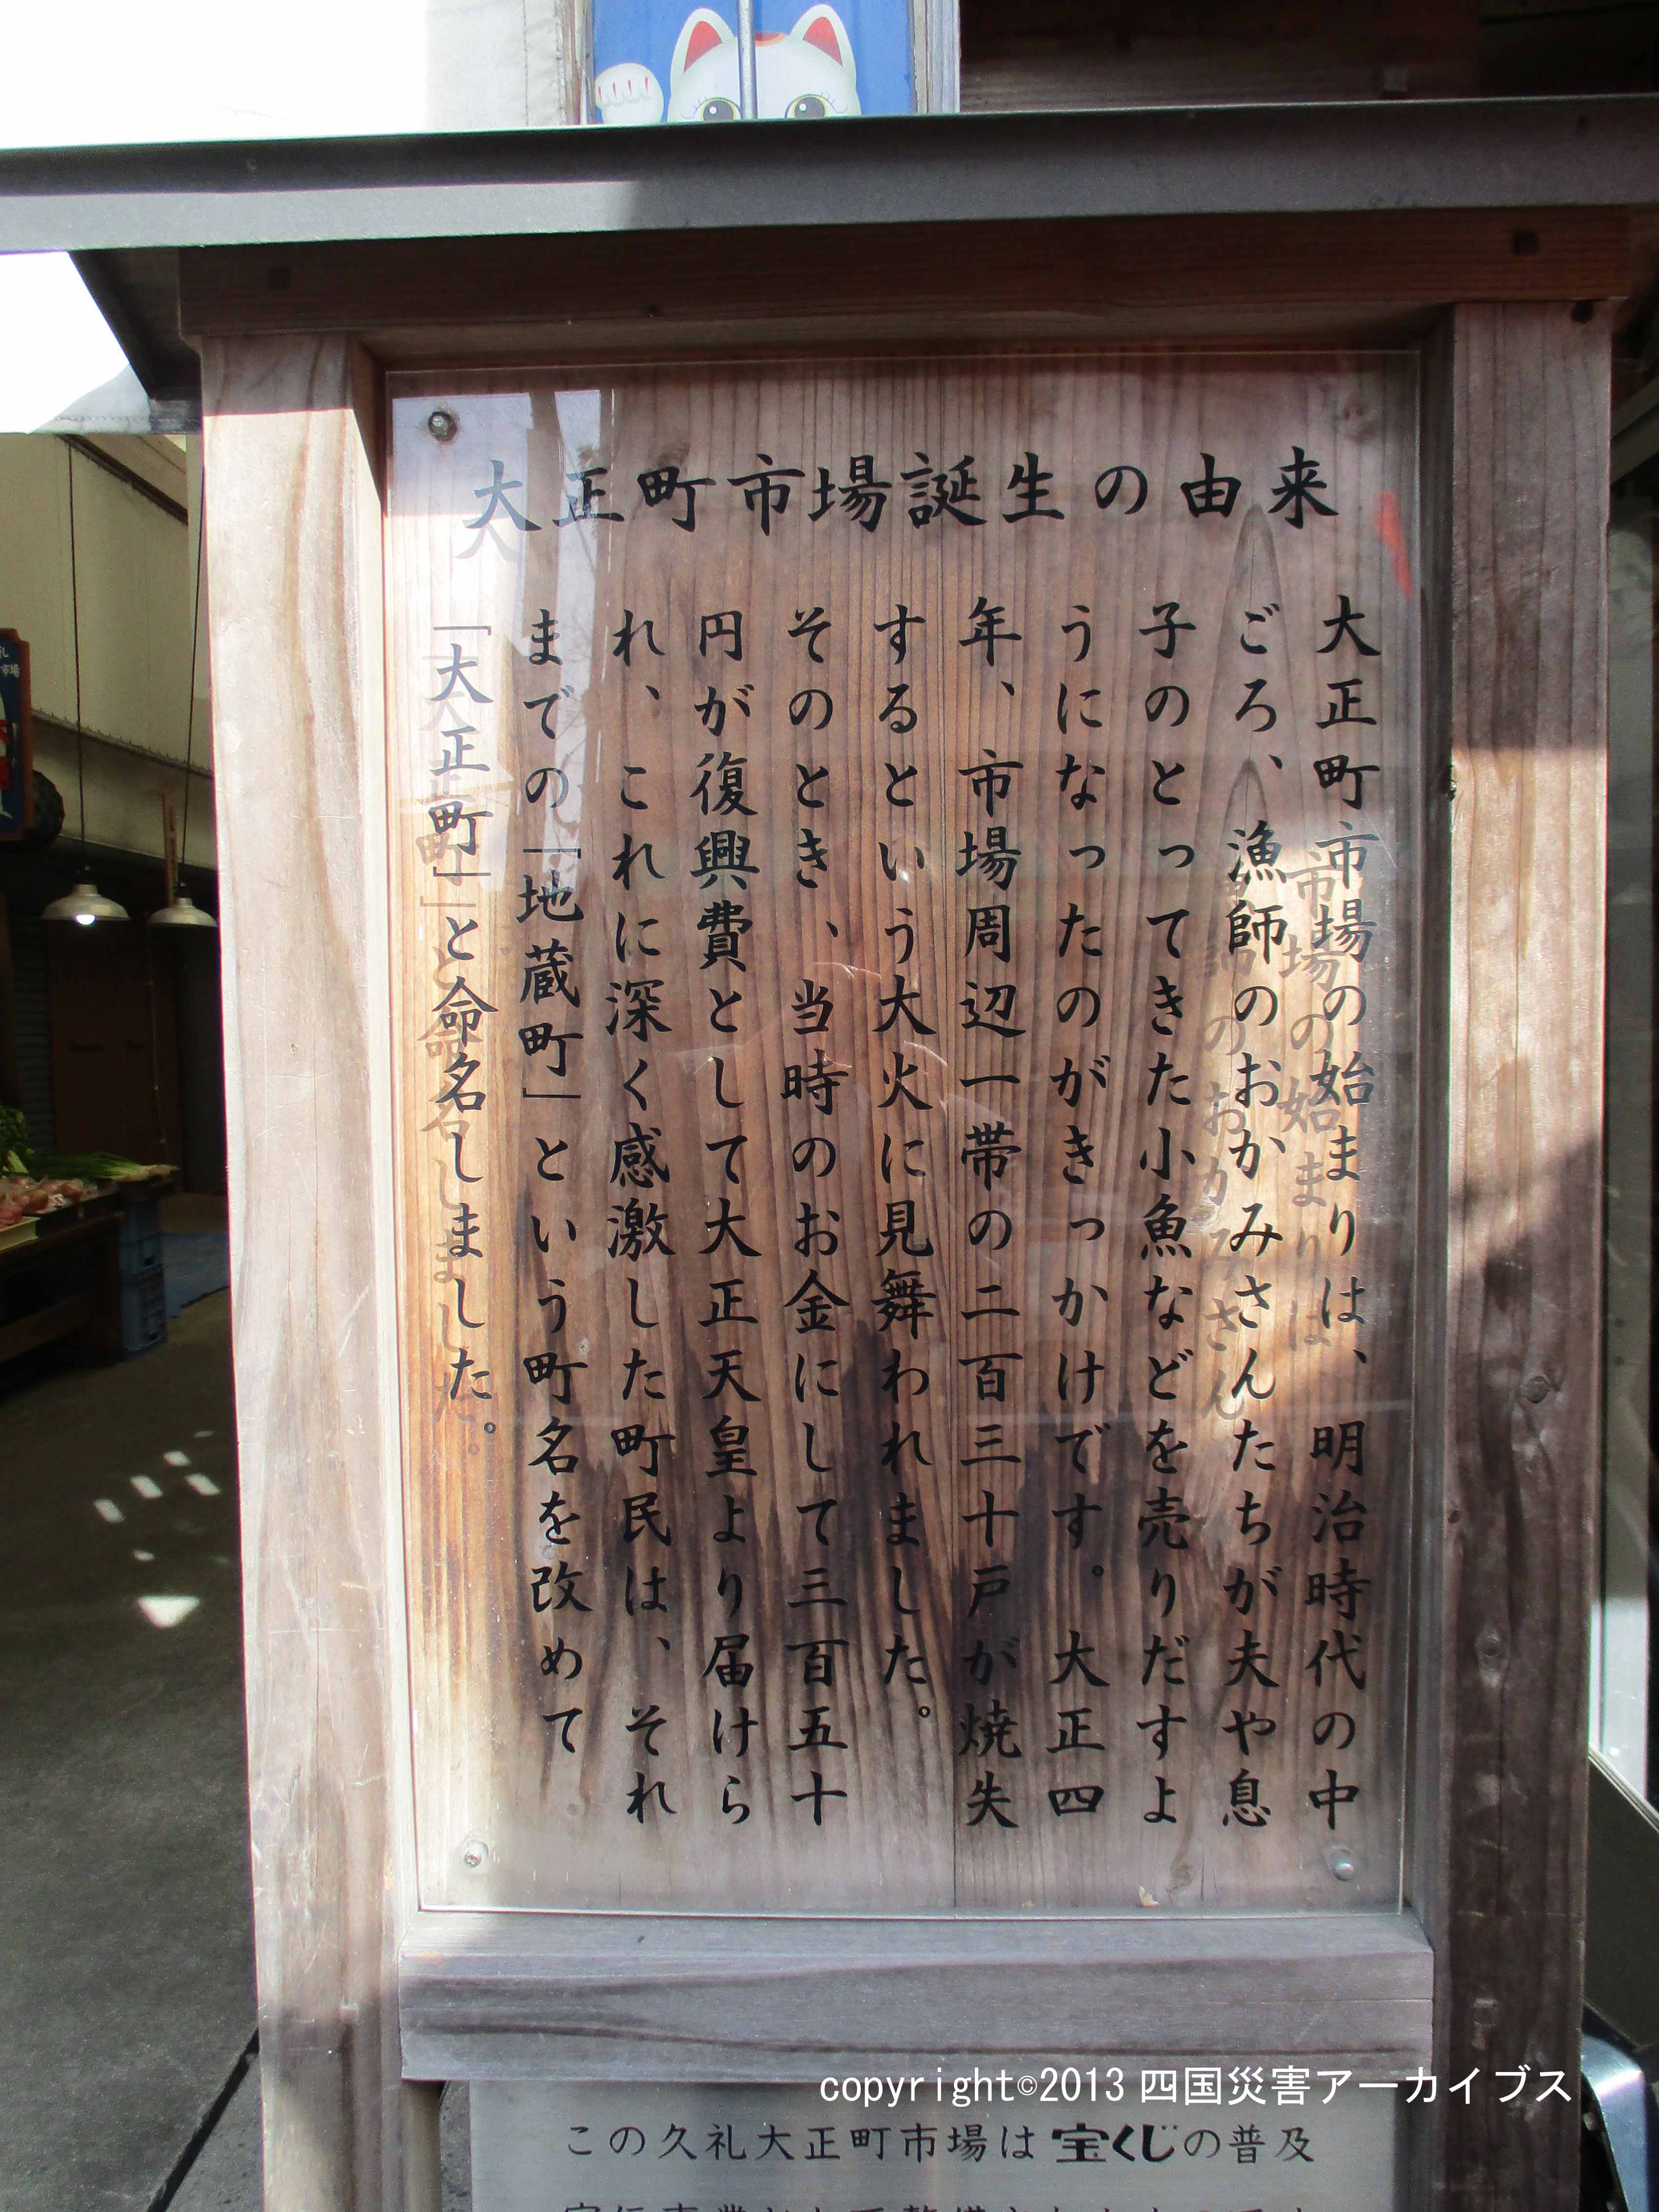 大正町市場誕生の由来
大正町市場の始まりは、明治時代の中
ごろ、漁師のおかみさんたちが夫や息
子のとってきた小魚などを売りだすよ
うになったのがきっかけです。大正四
年、市場周辺一帯の二百三十戸が焼失
するという大火に見舞われました。
そのとき、当時のお金にして三百五十
円が復興費として大正天皇より届けら
れ、これに深く感激した町民は、それ
までの「地蔵町」という町名を改めて
「大正町」と命名しました。
copyright©2013 四国災害アーカイブス
この久礼大正町市場は宝くじの普及